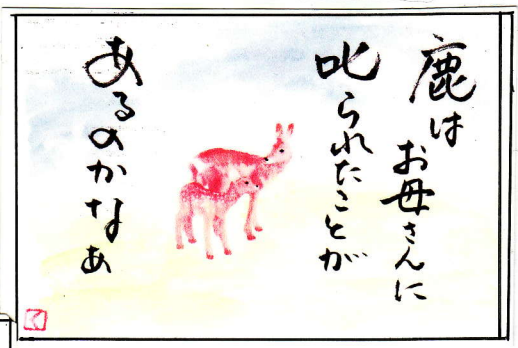 鹿はお母さんに
叱られたことが
あるのかなぁ
K